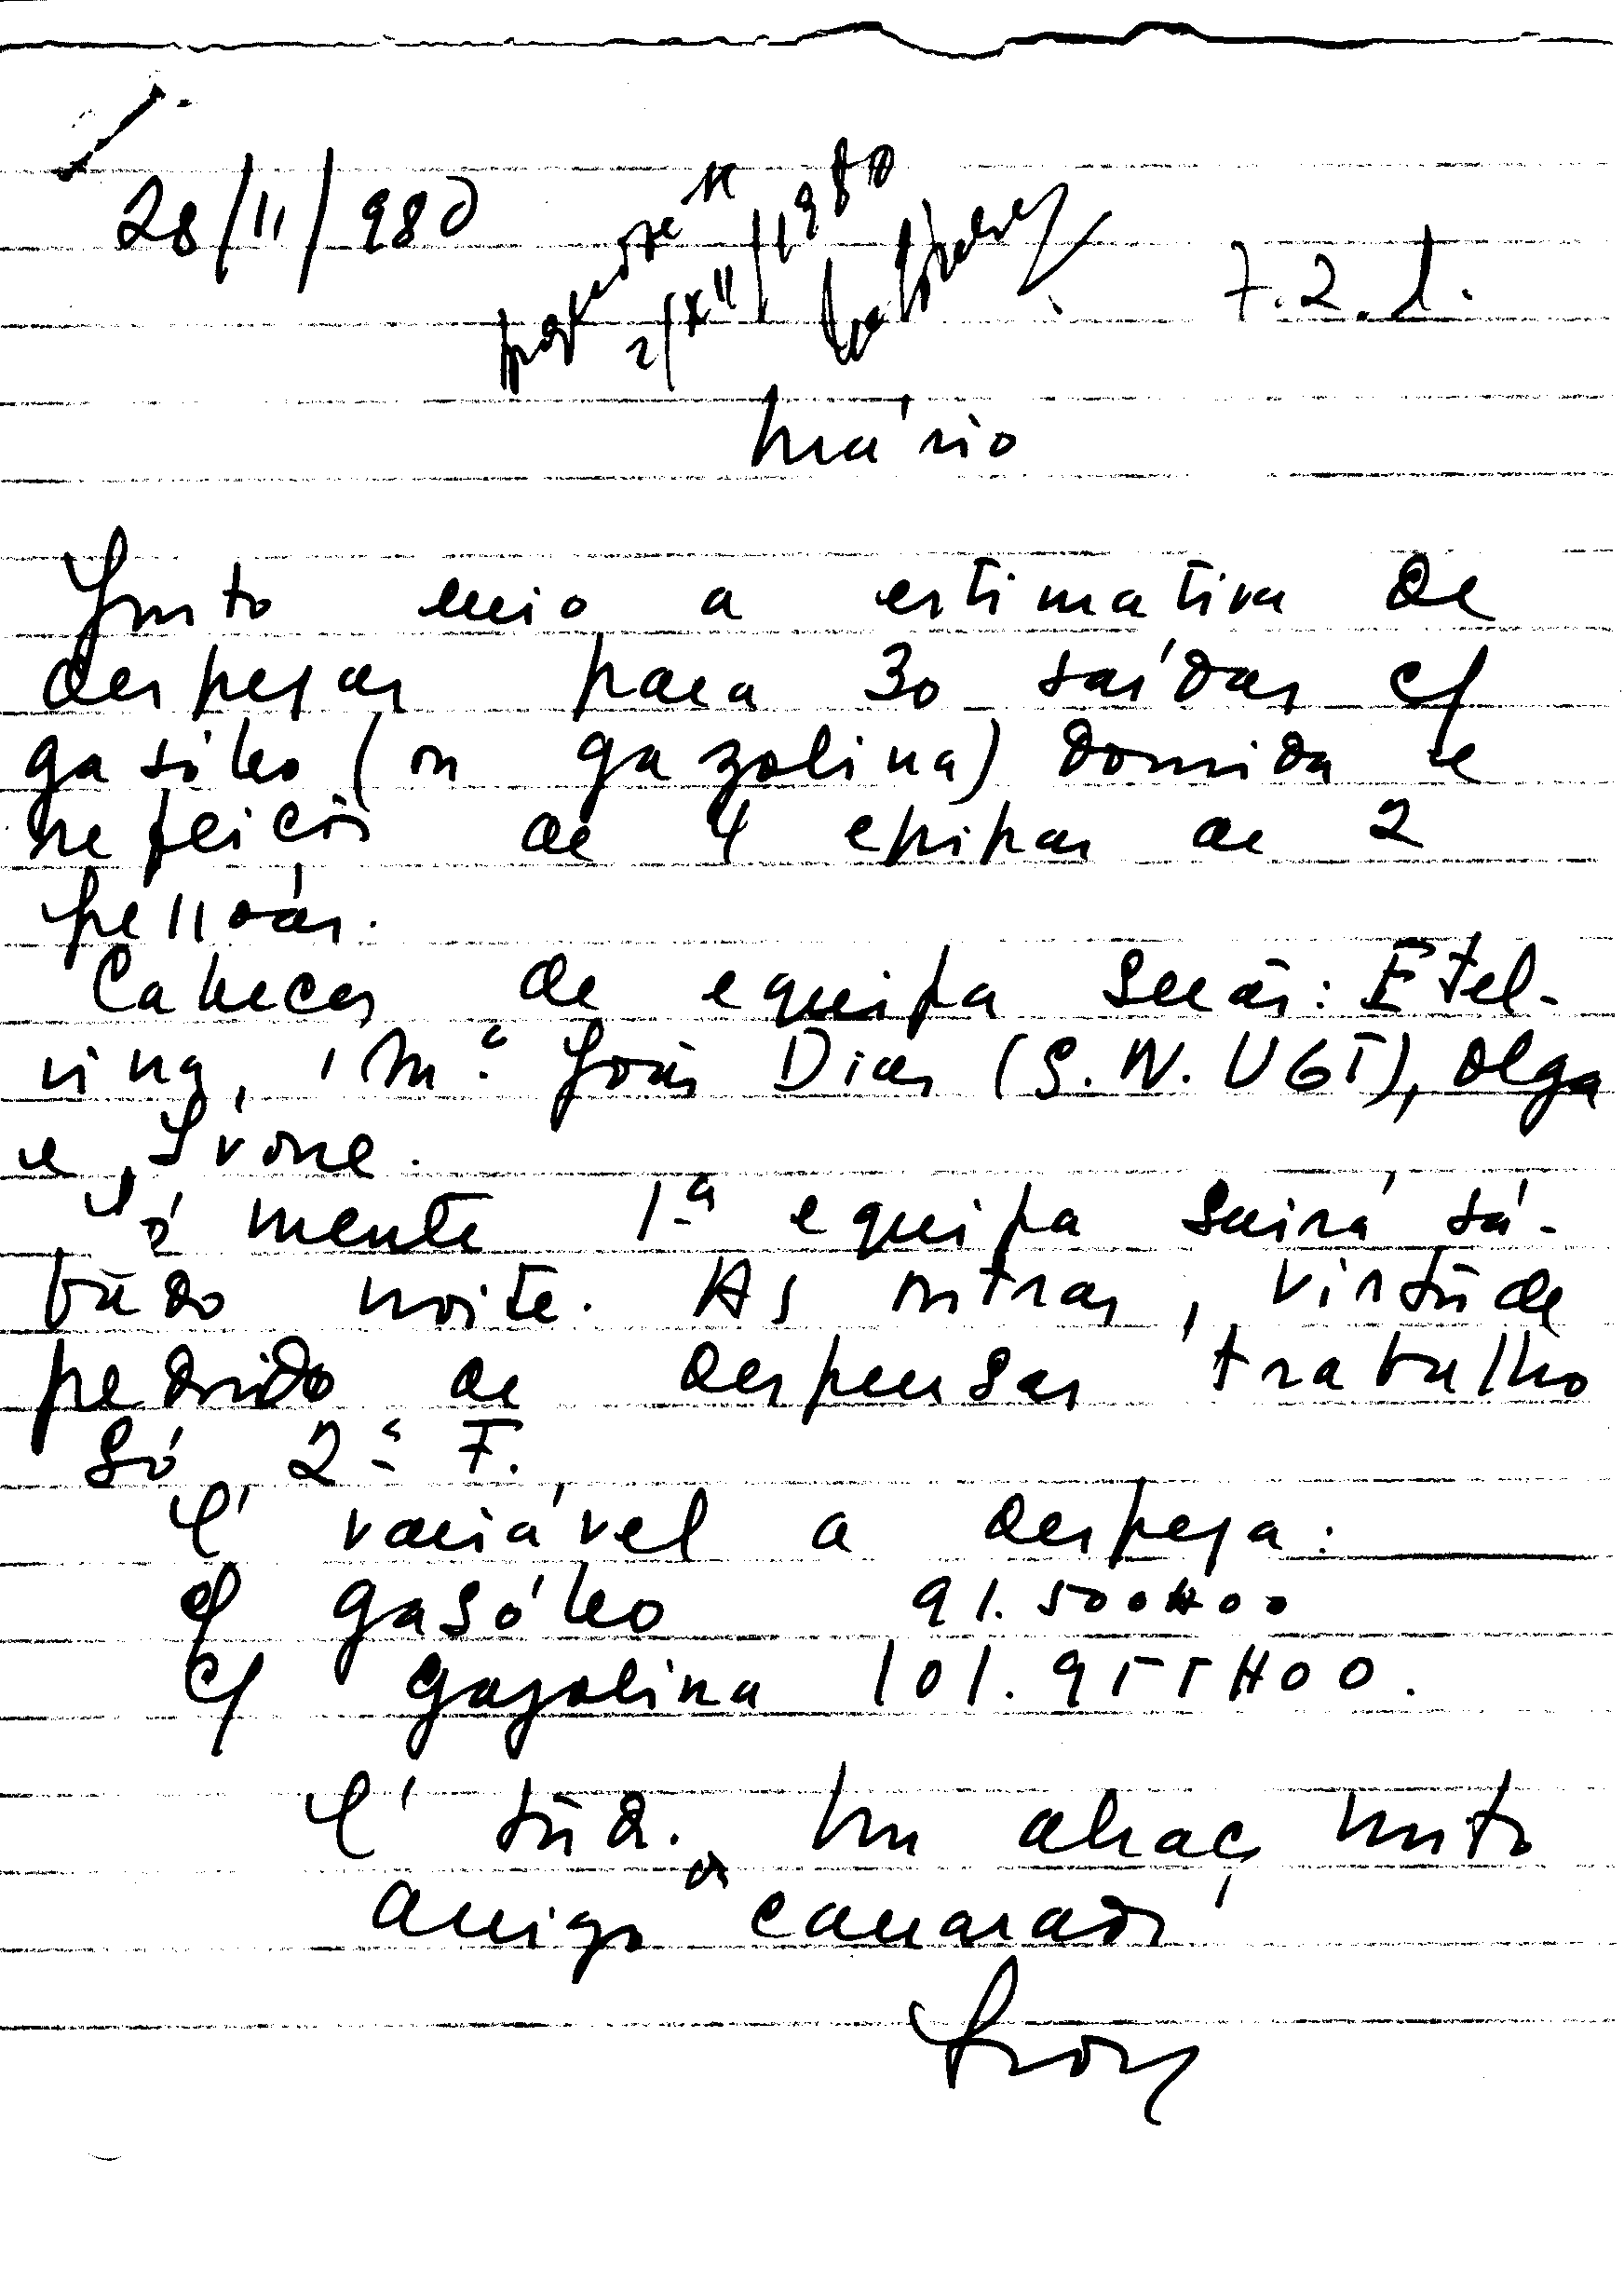 28/11/980
7.2.1.
Mário
Junto envio a estimativa de
despesas para 30 saídas c/
gasóleo (ou gazolina) dormida e
refeições de 4 equipas de 2
pessoas.
Cabeças de equipa serão: Etel-
vina, Mª João Dias (S.N. UGT), Olga
e Ivone.
Sómente 1ª equipa sairá sá-
bado noite. As outras, virtude
pedido de despensas trabalho
só 2ª F.
É variável a despesa:
c/ gasóleo 91.500$00
c/ gazolina 101.955$00.
É tudo. Um abraço muito
amigo e camarada